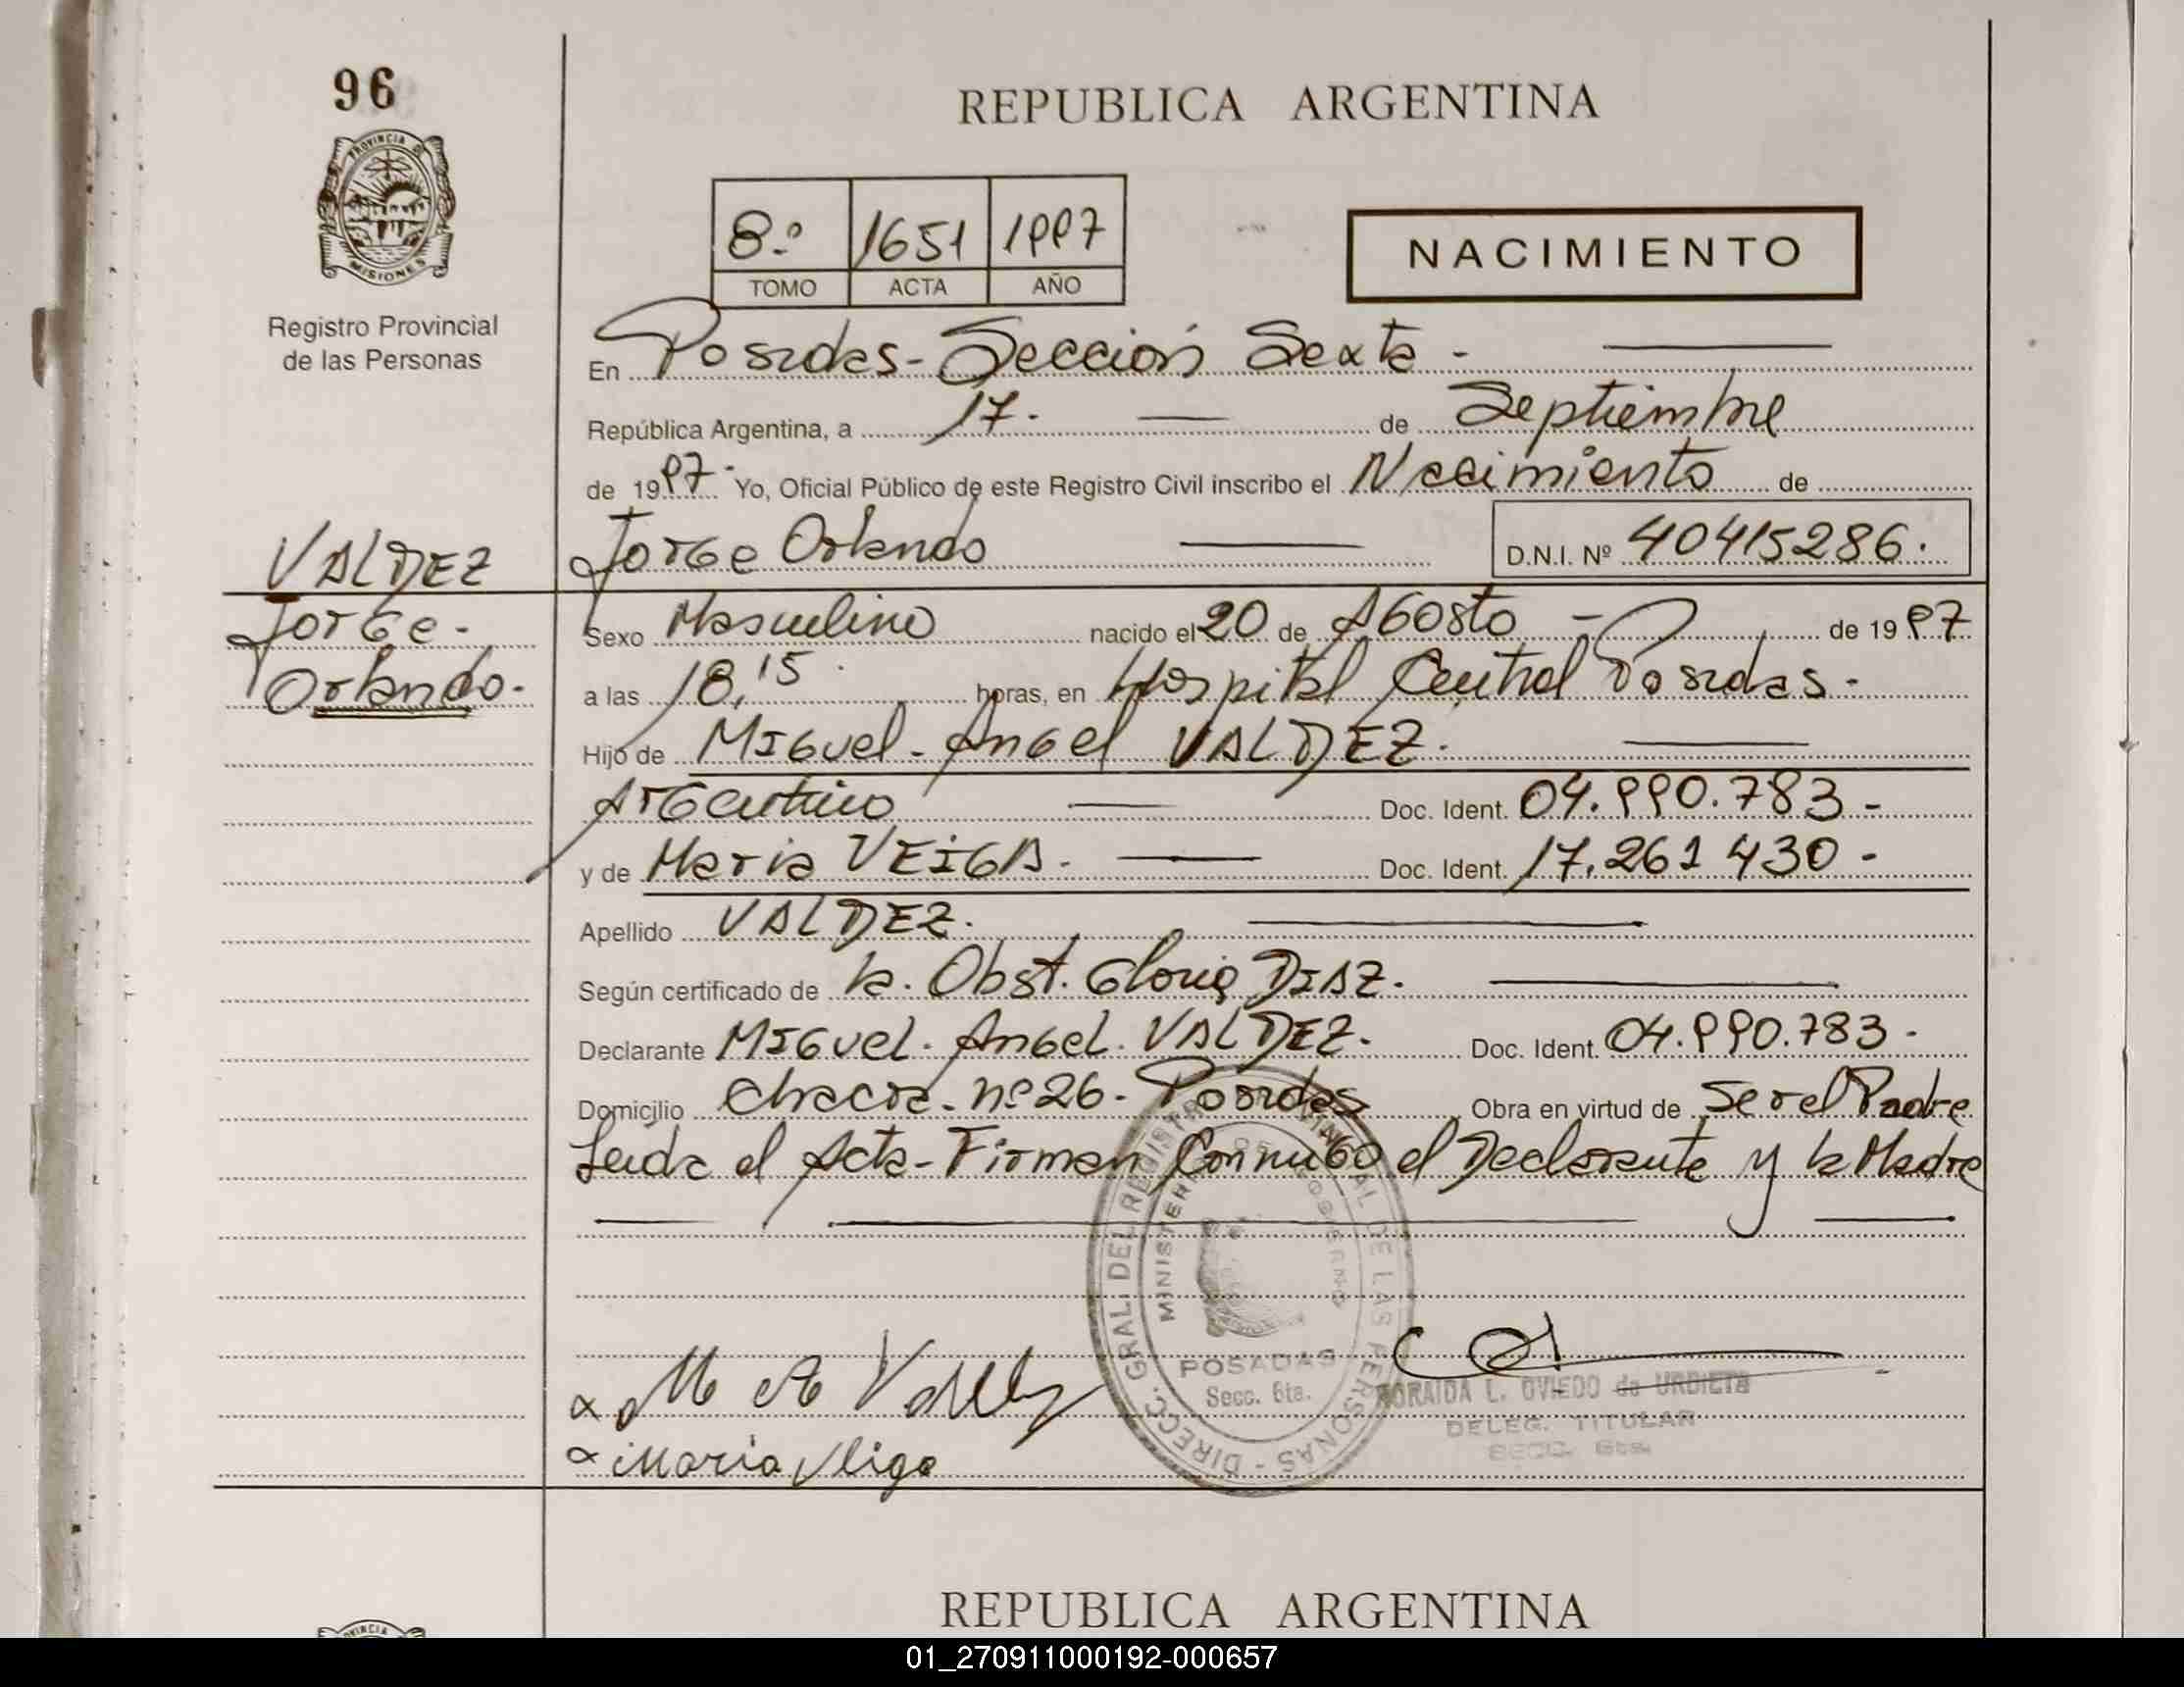 96
PROVINCIA DE
MISIONES
Registro Provincial
de las Personas
REPUBLICA ARGENTINA
8º 1651 1997
TOMO ACTA AÑO
NACIMIENTO
En Posadas - Sección Sexta -
República Argentina, a 17. de Septiembre
de 1997- Yo, Oficial Público de este Registro Civil inscribo el Nacimiento de
VALDEZ Jorge Orlando D.N.I. Nº 40415286.
Jorge- Sexo Masculino nacido el 20 de Agosto - de 1997
Orlando. a las 18,15 horas, en Hospital Central Posadas-
Hijo de Miguel-Angel VALDEZ.
Argentino Doc. Ident. 04.990.783-
y de Maria VEIGA. Doc. Ident. 17.261 430-
Apellido VALDEZ.
Según certificado de la. Obst. Gloria DIAZ.
Declarante Miguel. Angel. VALDEZ. Doc. Ident. 04.990.783-
Domicilio Chacra. nº 26- Posadas Obra en virtud de Ser el Padre
Leída el Acta-Firman Conmigo el Declarante y la Madre
DIRECC. GRAL. DEL REGISTRO PROVINCIAL DE LAS PERSONAS -
MINISTERIO DE GOBIERNO
POSADAS
Secc. 6ta.
x M A Valdez
ZORAIDA L. OVIEDO de URBIETA
DELEG. TITULAR
SECC. 6ta.
x Maria Veiga
REPUBLICA ARGENTINA
PROVINCIA
01_270911000192-000657